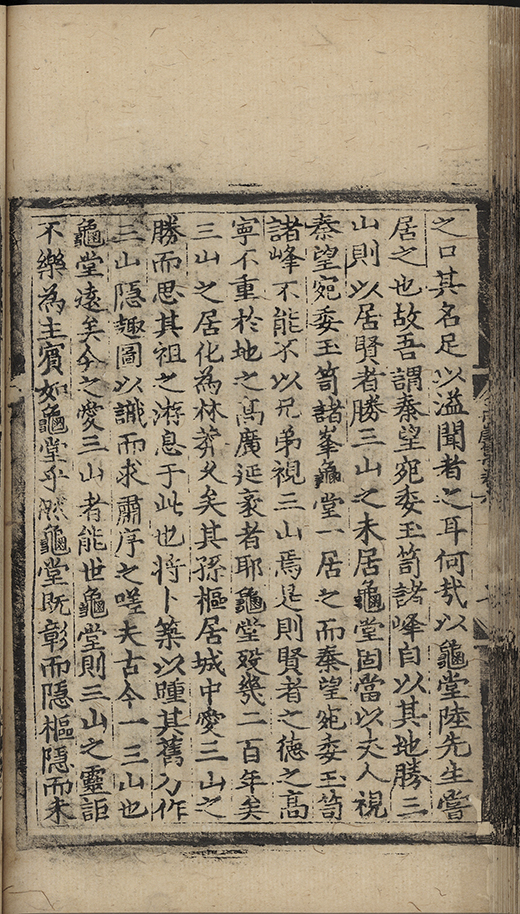 之口其名足以溢聞者之耳何哉以龜堂陸先生嘗
居之也故吾謂秦望宛委玉笥諸峰自以其地勝三
山則以居賢者勝三山之未居龜堂固當以丈人視
秦望宛委玉笥諸峯龜堂一居之而秦望宛委玉笥
諸峰不能不以兄弟視三山焉是則賢者之德之高
寧不重於地之高廣延袤者耶龜堂歿幾二百年矣
三山之居化為林莽久矣其孫樞居城中愛三山之
勝而思其祖之游息于此也將卜築以踵其舊乃作
三山隱趣圖以識而求肅序之嗟夫古今一三山也
龜堂遠矣今之愛三山者能世龜堂則三山之靈詎
不樂為主賓如龜堂乎然龜堂既彰而隱樞隱而未